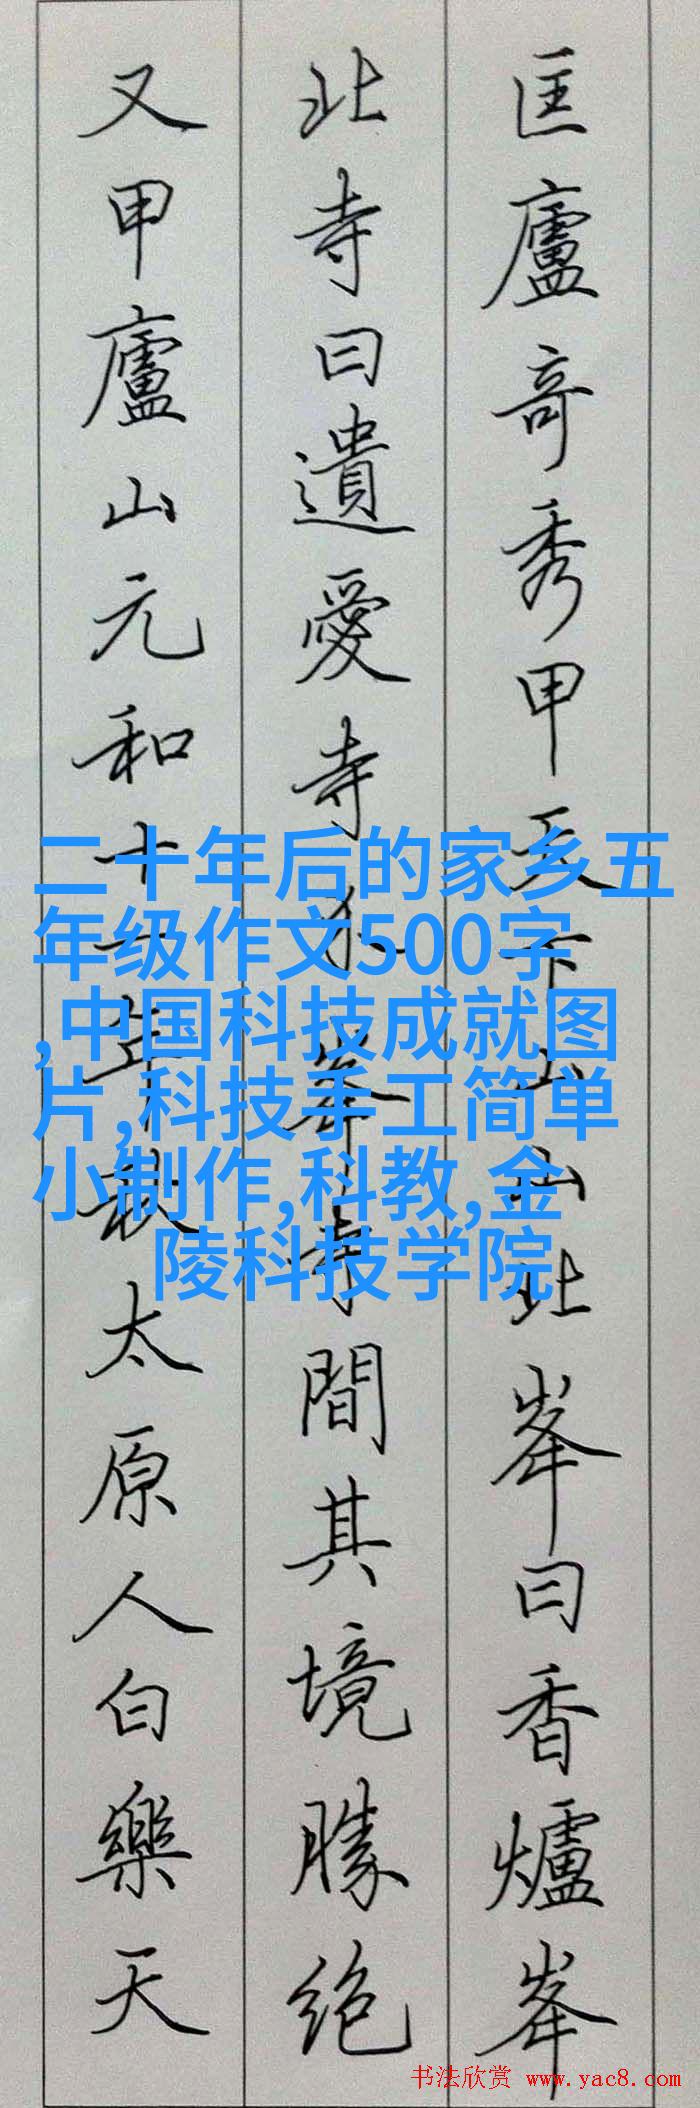 匡廬奇秀甲天下山山北峯曰香爐峯
北寺曰遺愛寺介峯寺間其境勝絶
又甲廬山元和十一年秋太原人白樂天
二十年后的家乡五
年级作文500字
,中国科技成就图
片,科技手工简单
小制作,科教,金
陵科技学院
书法欣赏 www.yac8.com